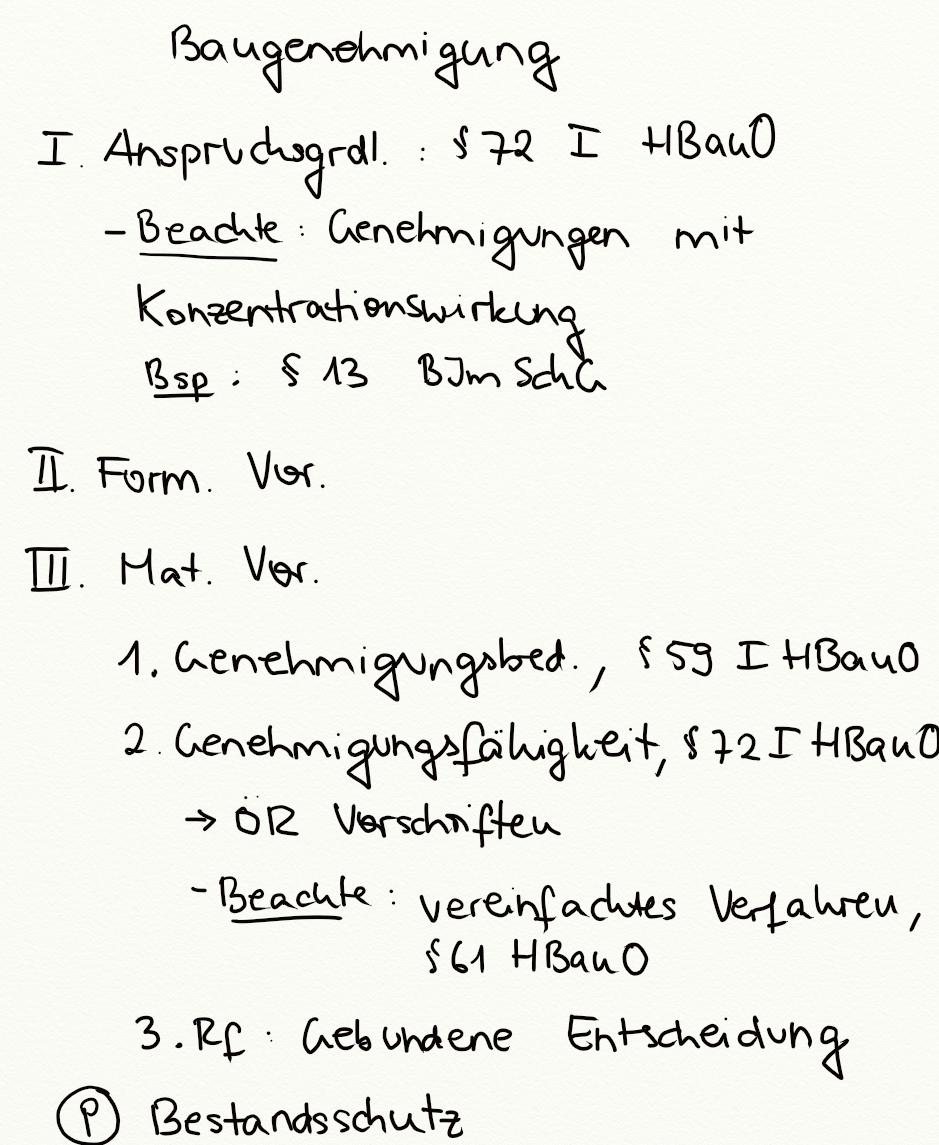 Baugenehmigung
I. Anspruchsgrdl. : § 72 I HBauO
- Beachte : Genehmigungen mit
Konzentrationswirkung
Bsp : § 13 BImSchG
II. Form. Vor.
III. Mat. Vor.
1. Genehmigungsbed., § 59 I HBauO
2. Genehmigungsfähigkeit, § 72 I HBauO
→ ÖR Vorschriften
- Beachte : vereinfachtes Verfahren,
§ 61 HBauO
3. Rf : Gebundene Entscheidung
(P) Bestandsschutz